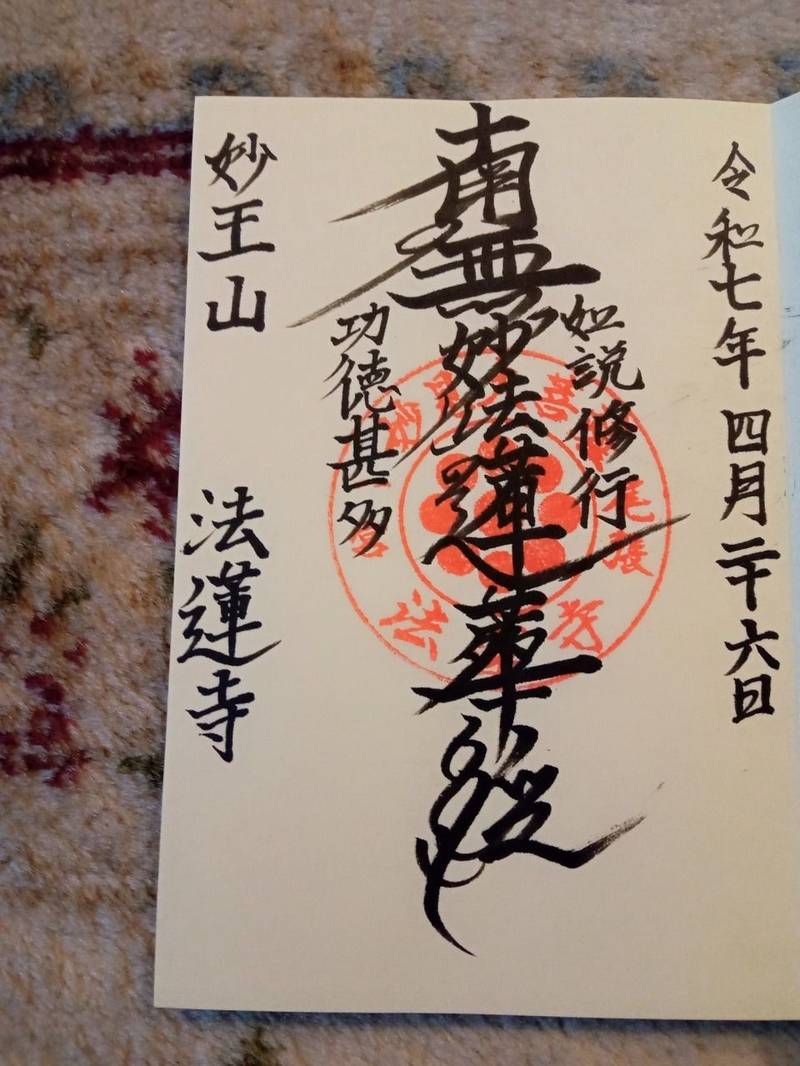 令和七年四月二十六日
如説修行
南無妙法蓮華経
功徳甚多
妙王山 法蓮寺